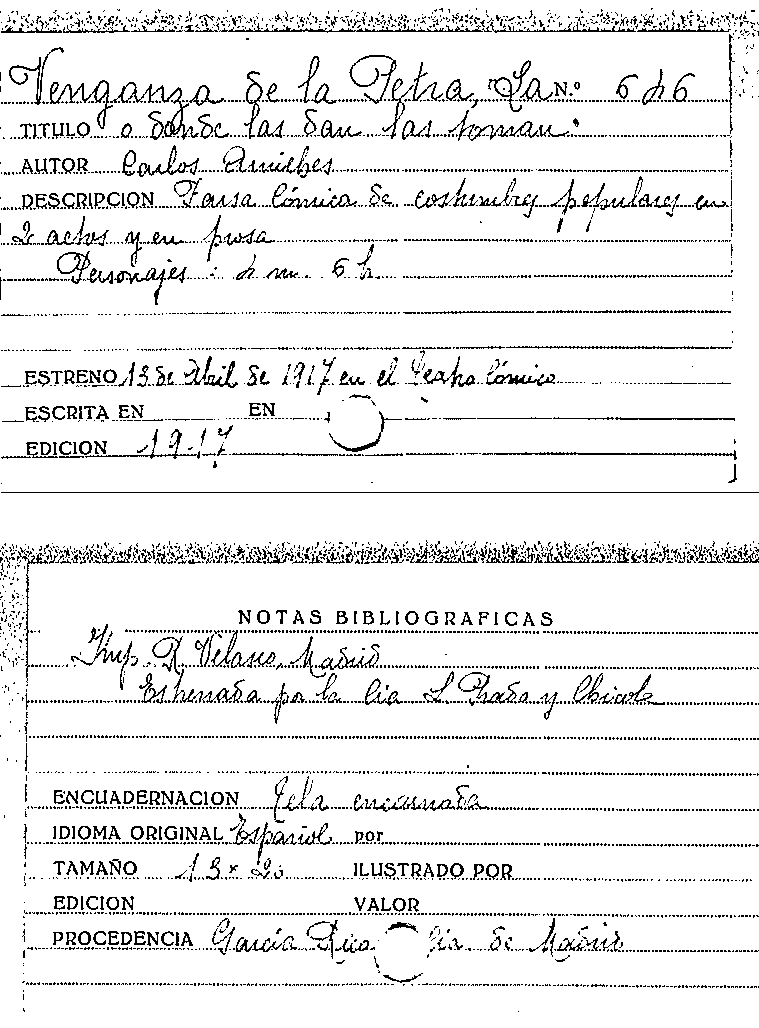 Venganza de la Petra, La N.º 646
TITULO o donde las dan las toman.
AUTOR Carlos Arniches
DESCRIPCION Farsa Cómica de costumbres populares en
2 actos y en prosa
Personajes : 4 m. 6 h.
ESTRENO 13 de Abril de 1917 en el Teatro Cómico
ESCRITA EN EN
EDICION 1917
NOTAS BIBLIOGRAFICAS
Imp. R. Velasco, Madrid
Estrenada por la Cia L. Prado y Chicote
ENCUADERNACION Tela encarnada
IDIOMA ORIGINAL Español por
TAMAÑO 13 x 20 ILUSTRADO POR
EDICION VALOR
PROCEDENCIA García Rico Cia. de Madrid